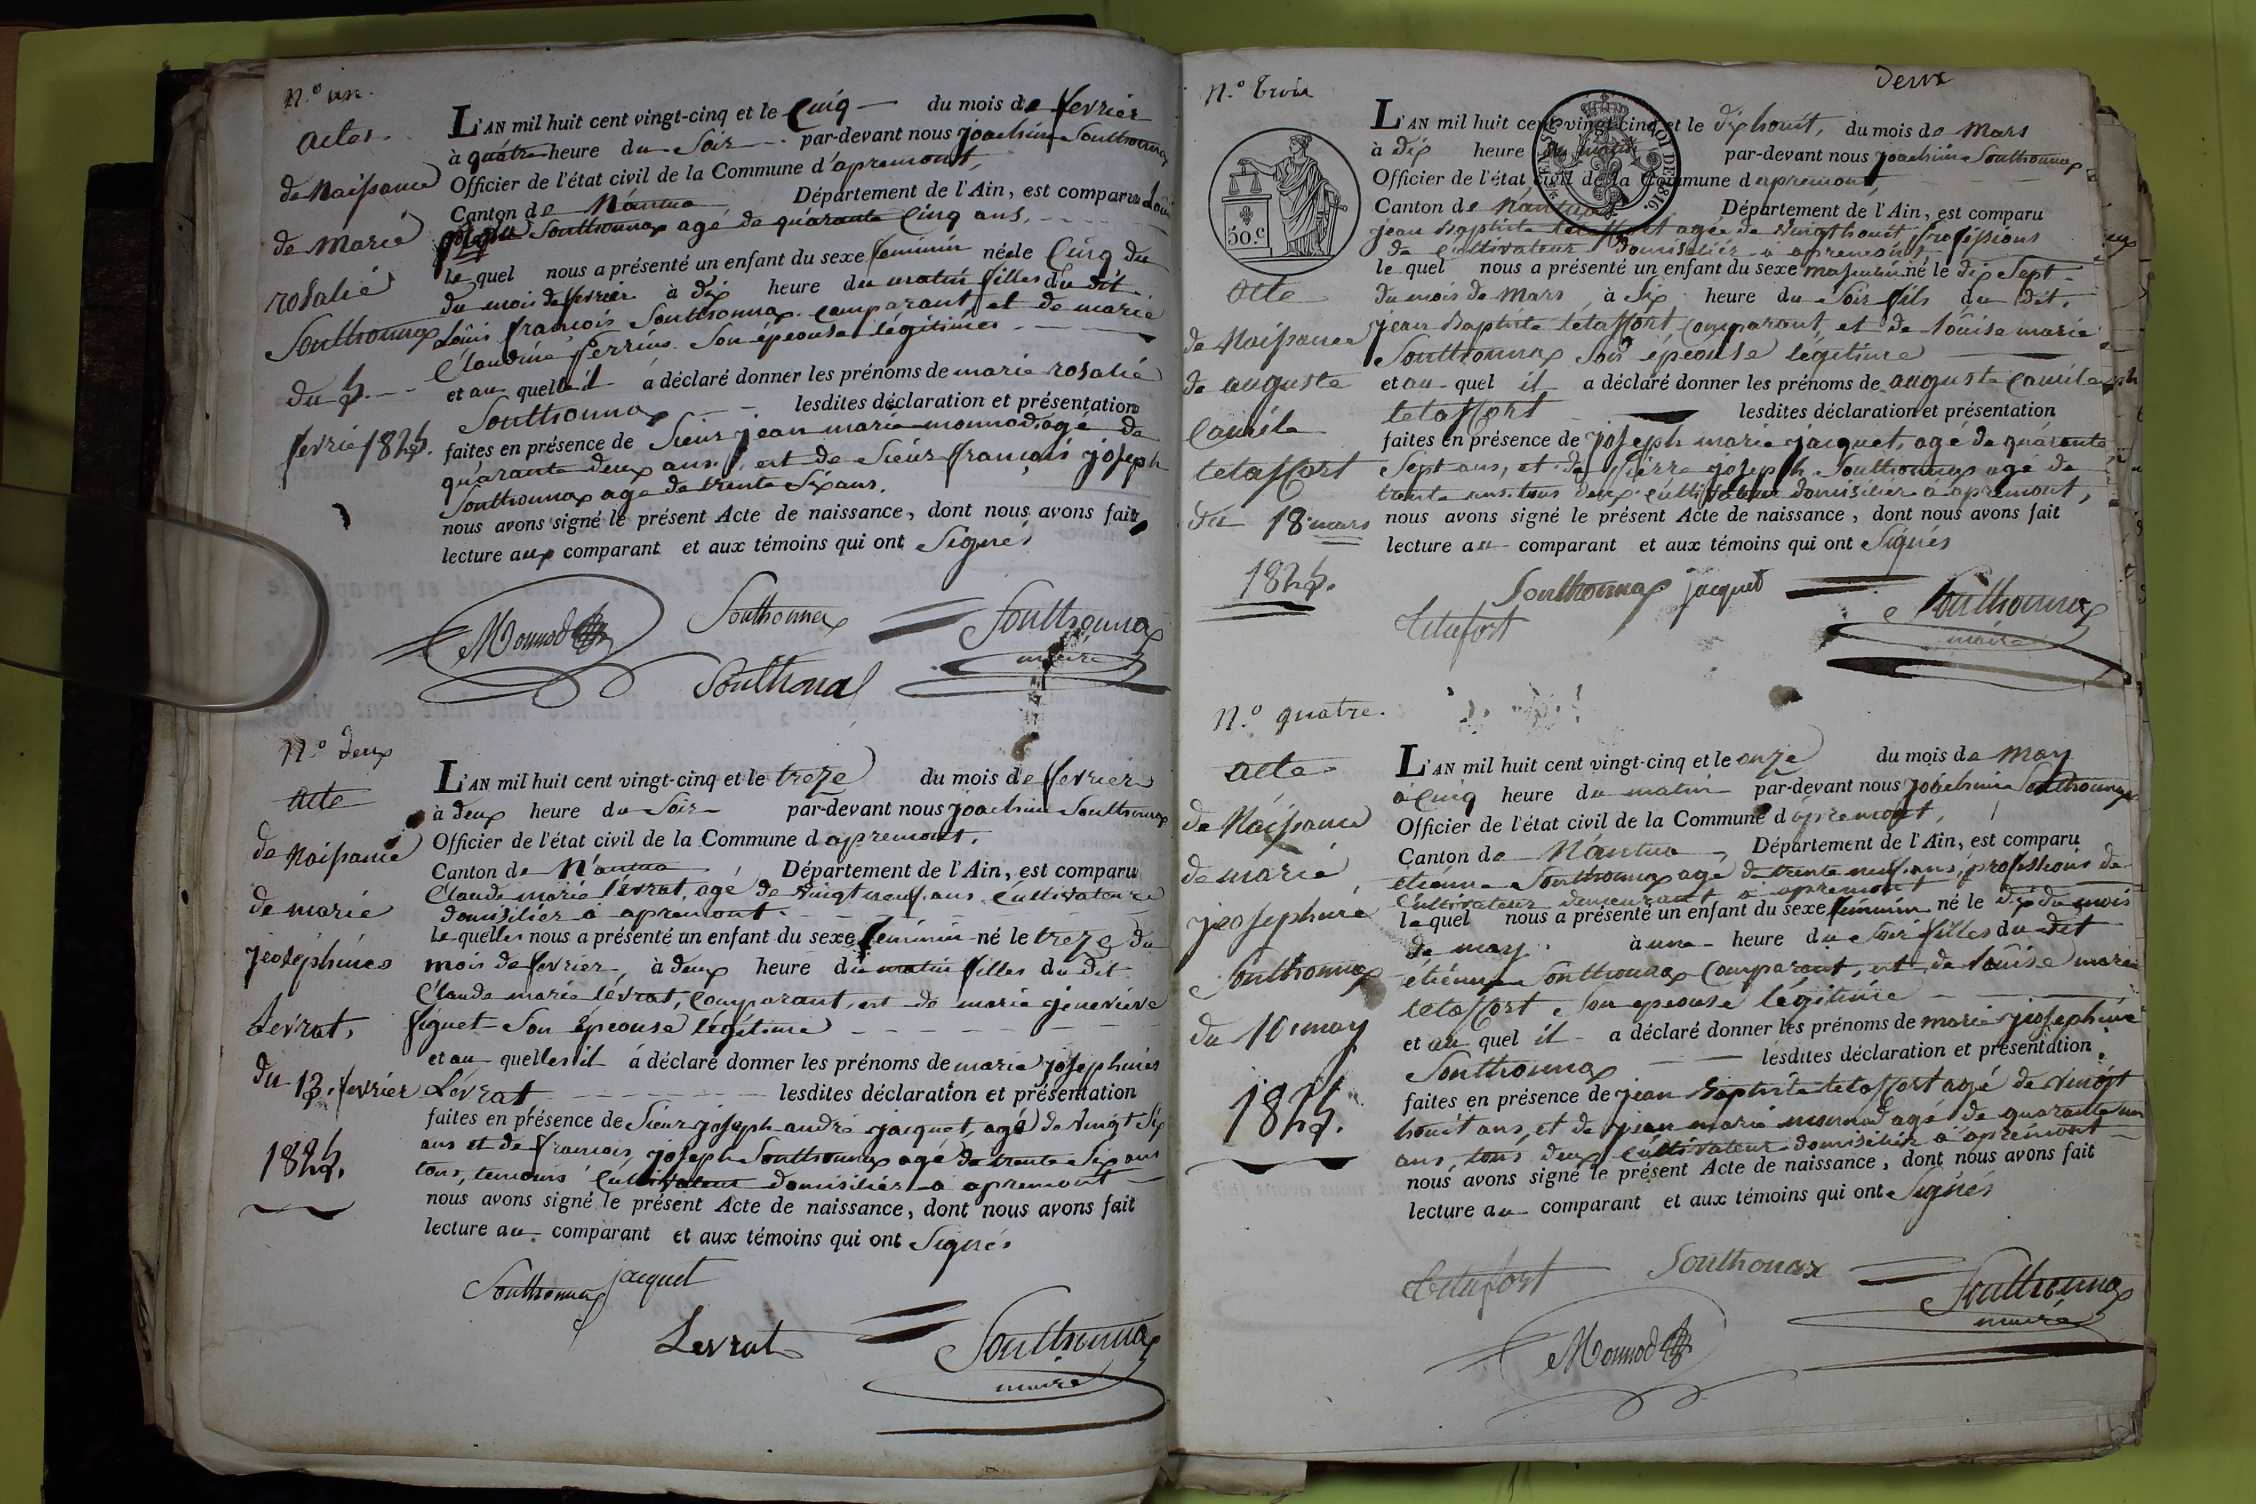 N.o un.
actes
de Naissance
de Marie
rosalie
Southonnax
du 5.
fevrié 1825.
L'AN mil huit cent vingt-cinq et le Cinq du mois de fevrier
à quatre heure du Soir par-devant nous joachim Southonnax
Officier de l'état civil de la Commune d'apremont,
Canton de Nantua Département de l'Ain, est comparu Loüis
Southonnax agé de quarante Cinq ans,
le quel nous a présenté un enfant du sexe feminin né le Cinq du
du mois de fevrier à dix heure du matin filles du dit
Loüis françois Southonnax comparant, et de marie
Claudine perrin Son épeouse légitimes
et au quelle il a déclaré donner les prénoms de marie rosalie
Southonnax lesdites déclaration et présentation
faites en présence de Sieur jean marie monnod agé de
quarante deux ans, est de Sieur françois joseph
Southonnax agé de trente Six ans.
nous avons signé le présent Acte de naissance, dont nous avons fait
lecture aux comparant et aux témoins qui ont Signés
Monnod Southonnax Southonnax
maire
Southonax
N.o deux
acte
de Naissance
de marie
jeoséphines
Levrat,
du 13. fevrier
1825.
L'AN mil huit cent vingt-cinq et le treze du mois de fevrier
à deux heure du Soir par-devant nous joachim Southonnax
Officier de l'état civil de la Commune d apremont,
Canton de Nantua Département de l'Ain, est comparu
Claude marie lévrat, agé de vingt neuf, ans, Cultivateure
domisiliér à apremont
le quelles nous a présenté un enfant du sexe feminin né le treze du
mois de fevrier, à deux heure du matin filles du dit
Claude marie lévrat, Comparant, est de marie jenevieve
figuet Son épeouse légitime
et au quelles il a déclaré donner les prénoms de marie joséphines
Lévrat lesdites déclaration et présentation
faites en présence de Sieur joseph andré jacquet, agé de vingt Six
ans et de francois, joseph Southonnax agé de trente Six ans
tous, temoins Cultivateur domisiliér à apremont
nous avons signé le présent Acte de naissance, dont nous avons fait
lecture au comparant et aux témoins qui ont Signés
Southonnax jacquet
Levrat Southonnax
maire
deux
N.o trois
50.c
ROI DE 1816.
acte
de Naissance
de auguste
Camile
tetaffort
du 18. mars
1825.
L'AN mil huit cent vingt-cinq et le dix houit, du mois de Mars
à dix heure du matin par-devant nous joachim Southonnax
Officier de l'état civil de la Commune d apremont,
Canton de Nantua Département de l'Ain, est comparu
jean Baptiste tetaffort agée de vingt houit, professions
de Cultivateur domisiliér à apremont,
le quel nous a présenté un enfant du sexe masculin né le dix Sept
du mois de Mars, à Six heure du Soir fils du dit.
jean Baptiste tetaffort, Comparant, et de loüise marie
Southonnax Son épeouse légitime
et au quel il a déclaré donner les prénoms de auguste Camile
tetaffort lesdites déclaration et présentation
faites en présence de joseph marie jacquet, agé de quarante
Sept ans, et de pierre joseph Southonnax agé de
trente ans tous deux Cultivateur domisiliér à apremont,
nous avons signé le présent Acte de naissance, dont nous avons fait
lecture au comparant et aux témoins qui ont Signés
Southonnax jacquet Southonnax
Tetafort maire
N.o quatre.
acte
de Naissance
de marie
jeosephine
Southonnax
du 10 may
1825.
L'AN mil huit cent vingt-cinq et le onze du mois de May
à Cinq heure du matin par-devant nous joachim Southonnax
Officier de l'état civil de la Commune d apremont,
Canton de Nantua Département de l'Ain, est comparu
etiénne Southonnax agé de trente neuf, ans, professions de
Cultivateur demeurant à apremont
le quel nous a présenté un enfant du sexe feminin né le dix du mois
de may à une heure du Soir filles du dit
etiénne Southonnax Comparant, est de loüise marie
tetaffort Son epeouse légitime
et au quel il a déclaré donner les prénoms de marie jeosephine
Southonnax lesdites déclaration et présentation
faites en présence de jean Baptiste tetaffort agé de vingt
houit ans, et de jean marie monnod agé de quarante un
ans, tous deux Cultivateur domisiliér à apremont
nous avons signé le présent Acte de naissance, dont nous avons fait
lecture au comparant et aux témoins qui ont Signés
Tetafort Southonax Southonnax
maire
Monnod